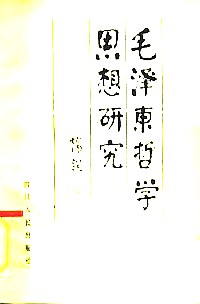 毛泽東哲学
思想研究
四川人民出版社